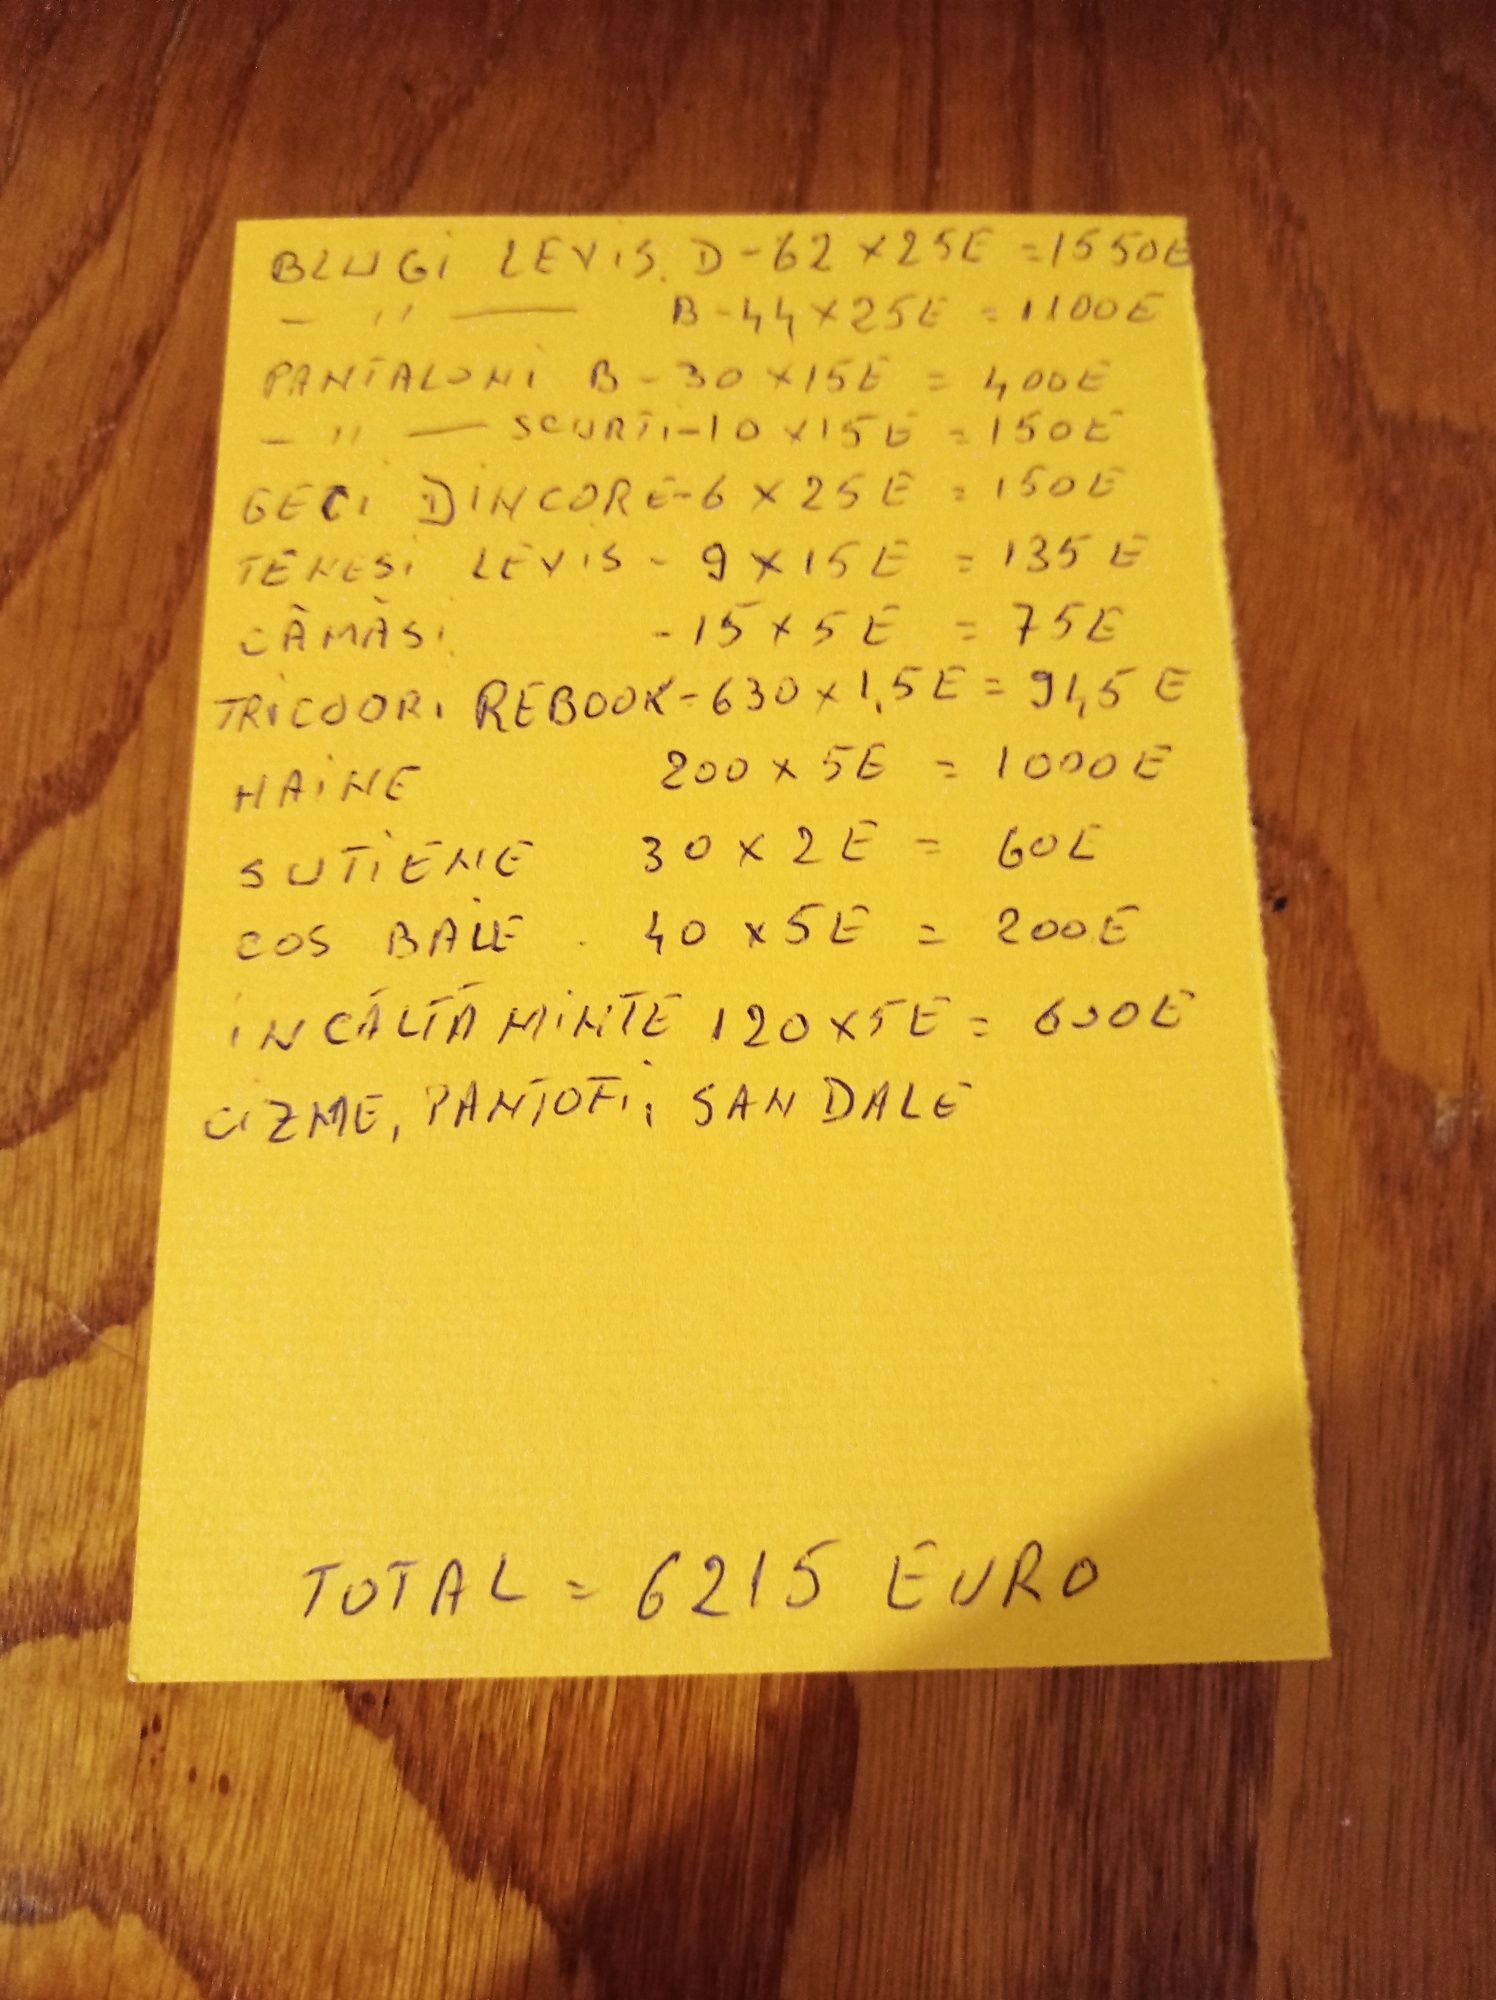 BLUGI LEVIS. D-62 x 25E = 1550E
- " — B-44 x 25E = 1100E
PANTALONI B - 30 x 15E = 400E
- " — SCURTI-10 x 15E = 150E
GECI DINCORE-6 x 25E = 150E
TENESI LEVIS - 9 x 15E = 135E
CĂMĂSI - 15 x 5E = 75E
TRICOORI REBOOK - 630 x 1,5E = 945 E
HAINE 200 x 5E = 1000E
SUTIENE 30 x 2E = 60E
COS BAIE . 40 x 5E = 200E
INCĂLTĂMINTE 120 x 5E = 600E
CIZME, PANTOFI, SANDALE
TOTAL = 6215 EURO